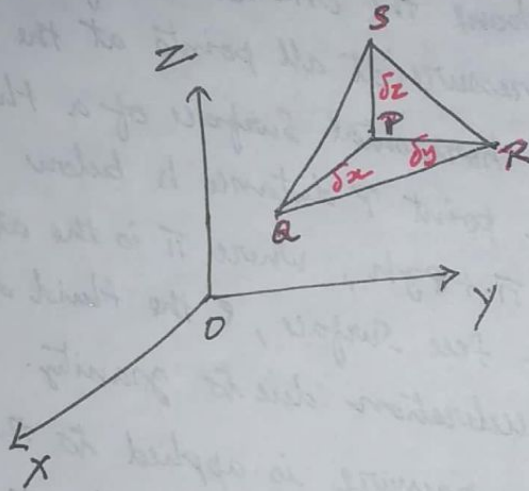 S
Z
δz
P
δy
R
δx
Q
O
Y
X